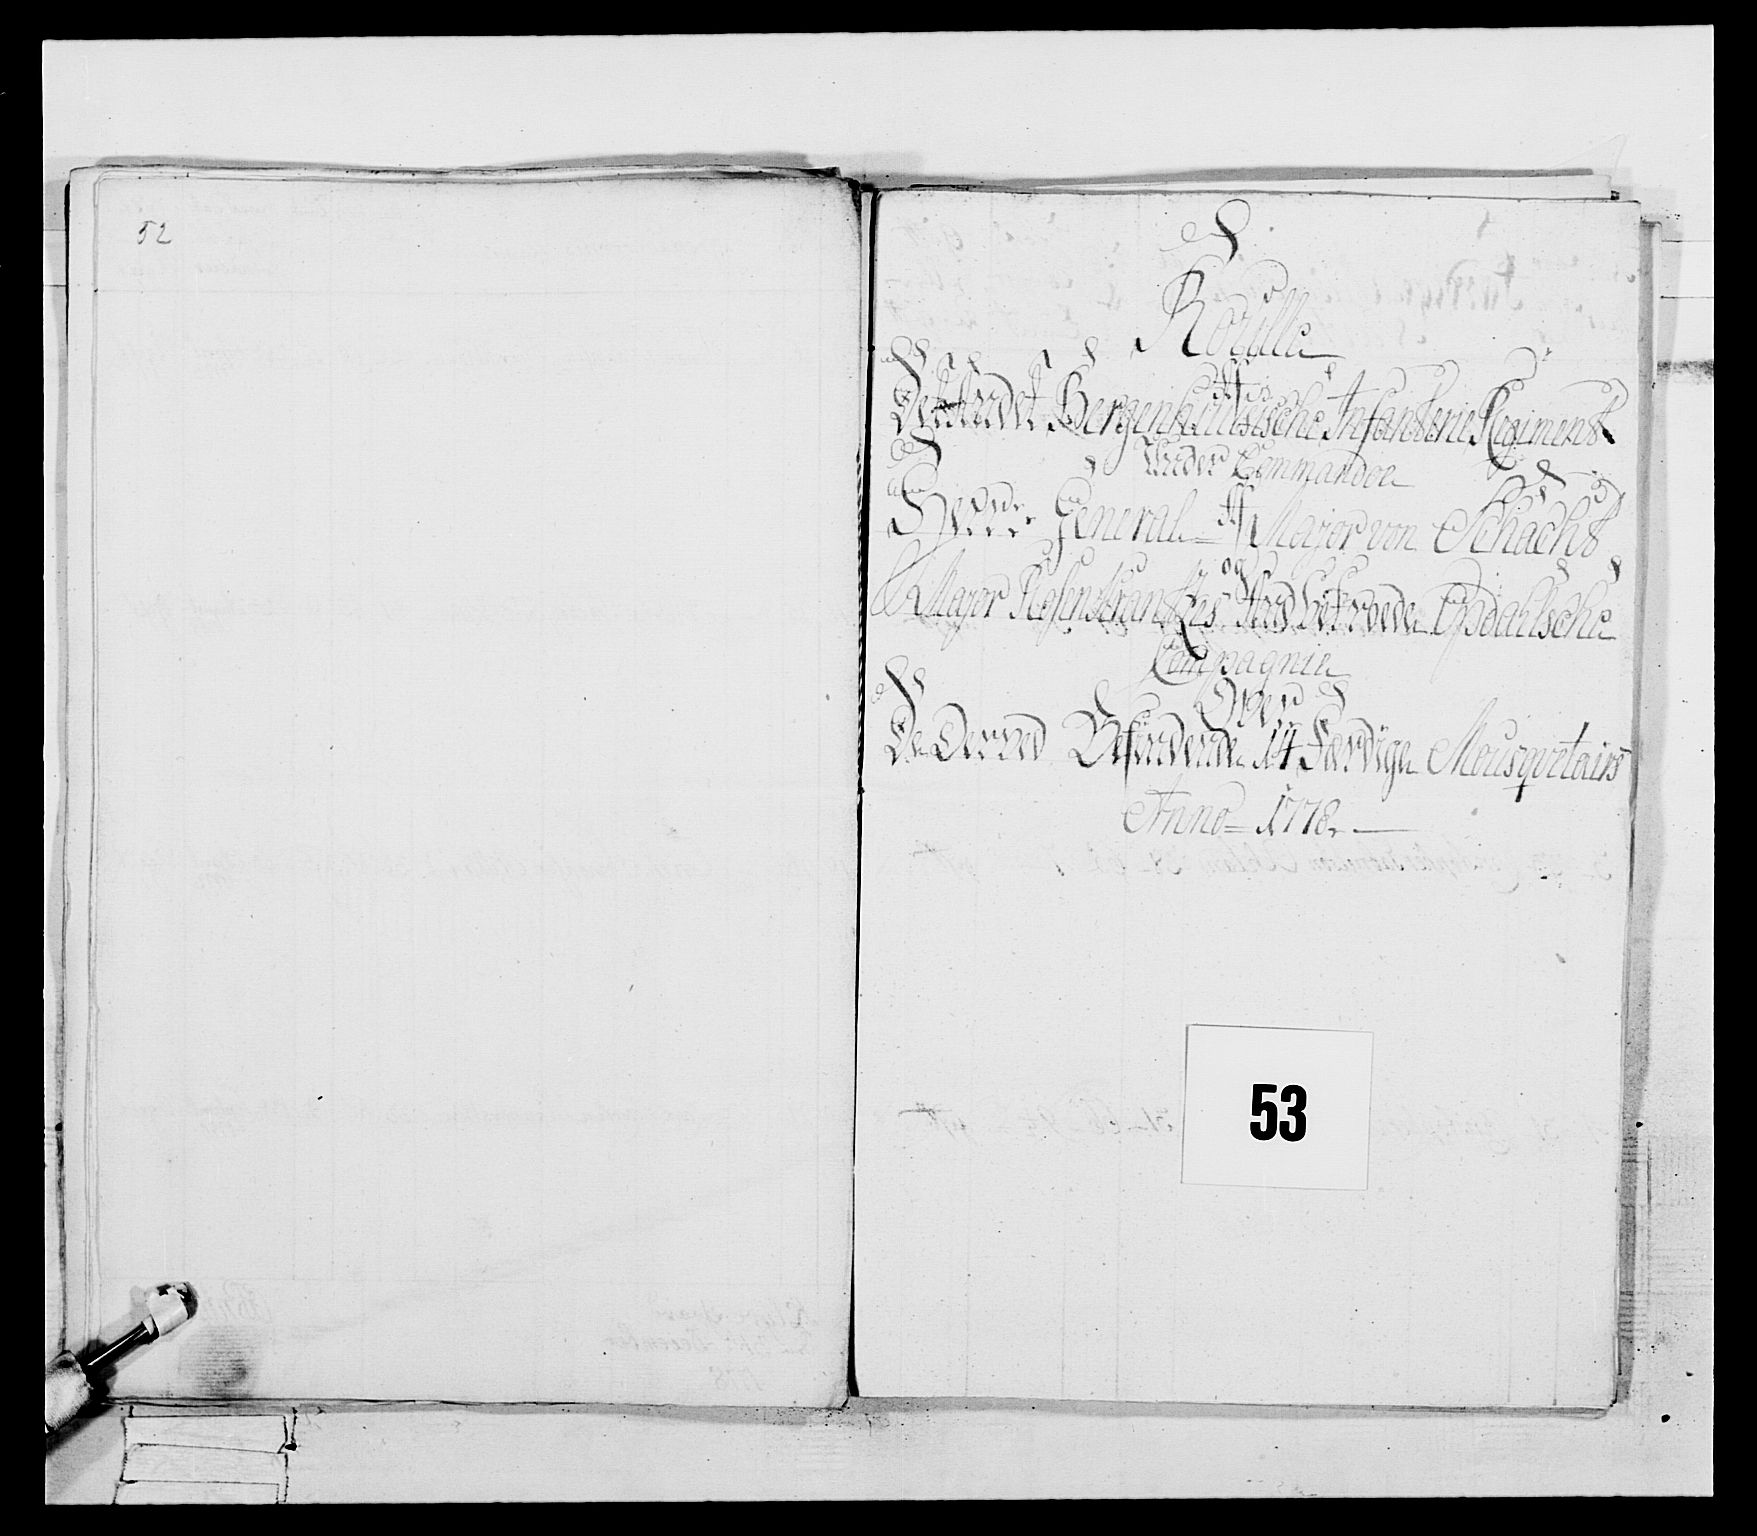 52
Roulle
Det Andet Bergenhuusische Infanterie Regiment
Under Commando
Herr General Major von Schacht
og
Major Rosenkrantzes Opdahlsche
Compagnie
Over
De Derved Befindende 14 Færdige Mousqvetairs
Anno 1778.
53